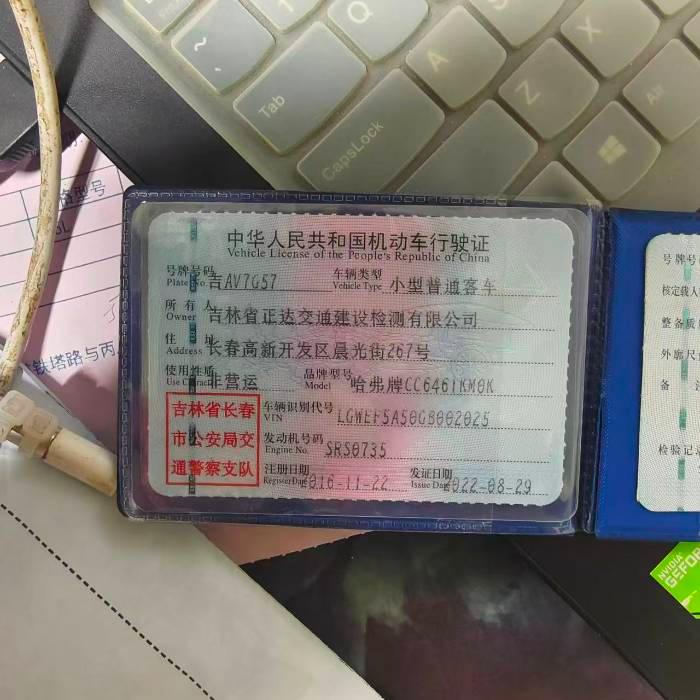 ~
`
Tab
Q
A
Z
X
Alt
CapsLock
型号
铁塔路与丙
中华人民共和国机动车行驶证
Vehicle License of the People's Republic of China
号牌号码 Plate No. 吉AV7G57 车辆类型 Vehicle Type 小型普通客车
所有人 Owner 吉林省正达交通建设检测有限公司
住址 Address 长春高新开发区晨光街267号
使用性质 Use Character 非营运 品牌型号 Model 哈弗牌CC6461KM0K
吉林省长春
市公安局交
通警察支队
车辆识别代号 VIN LGWEF5A50GB002025
发动机号码 Engine No. SRS0735
注册日期 Register Date 2016-11-22 发证日期 Issue Date 2022-08-29
号牌号
核定载人
整备质
外廓尺
备
检验记
NVIDIA
GEFOR